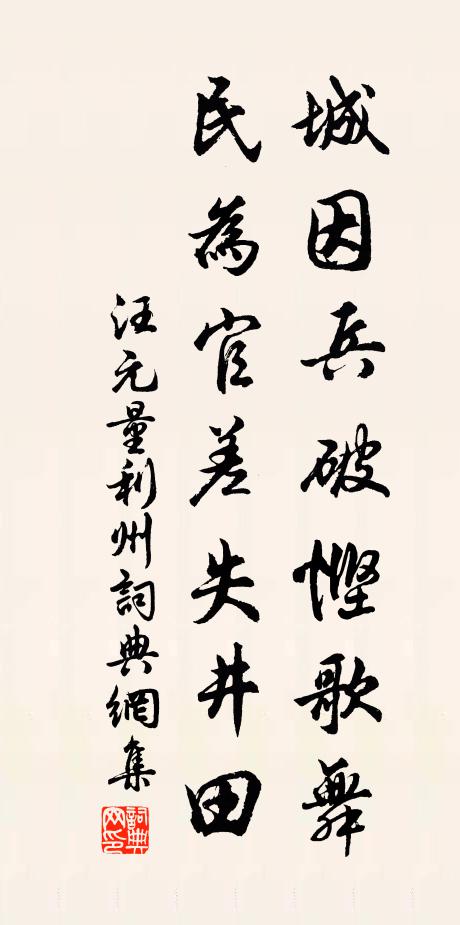 城因兵破慳歌舞
民為官差失井田
汪元量利州詞典網集
詞典網印